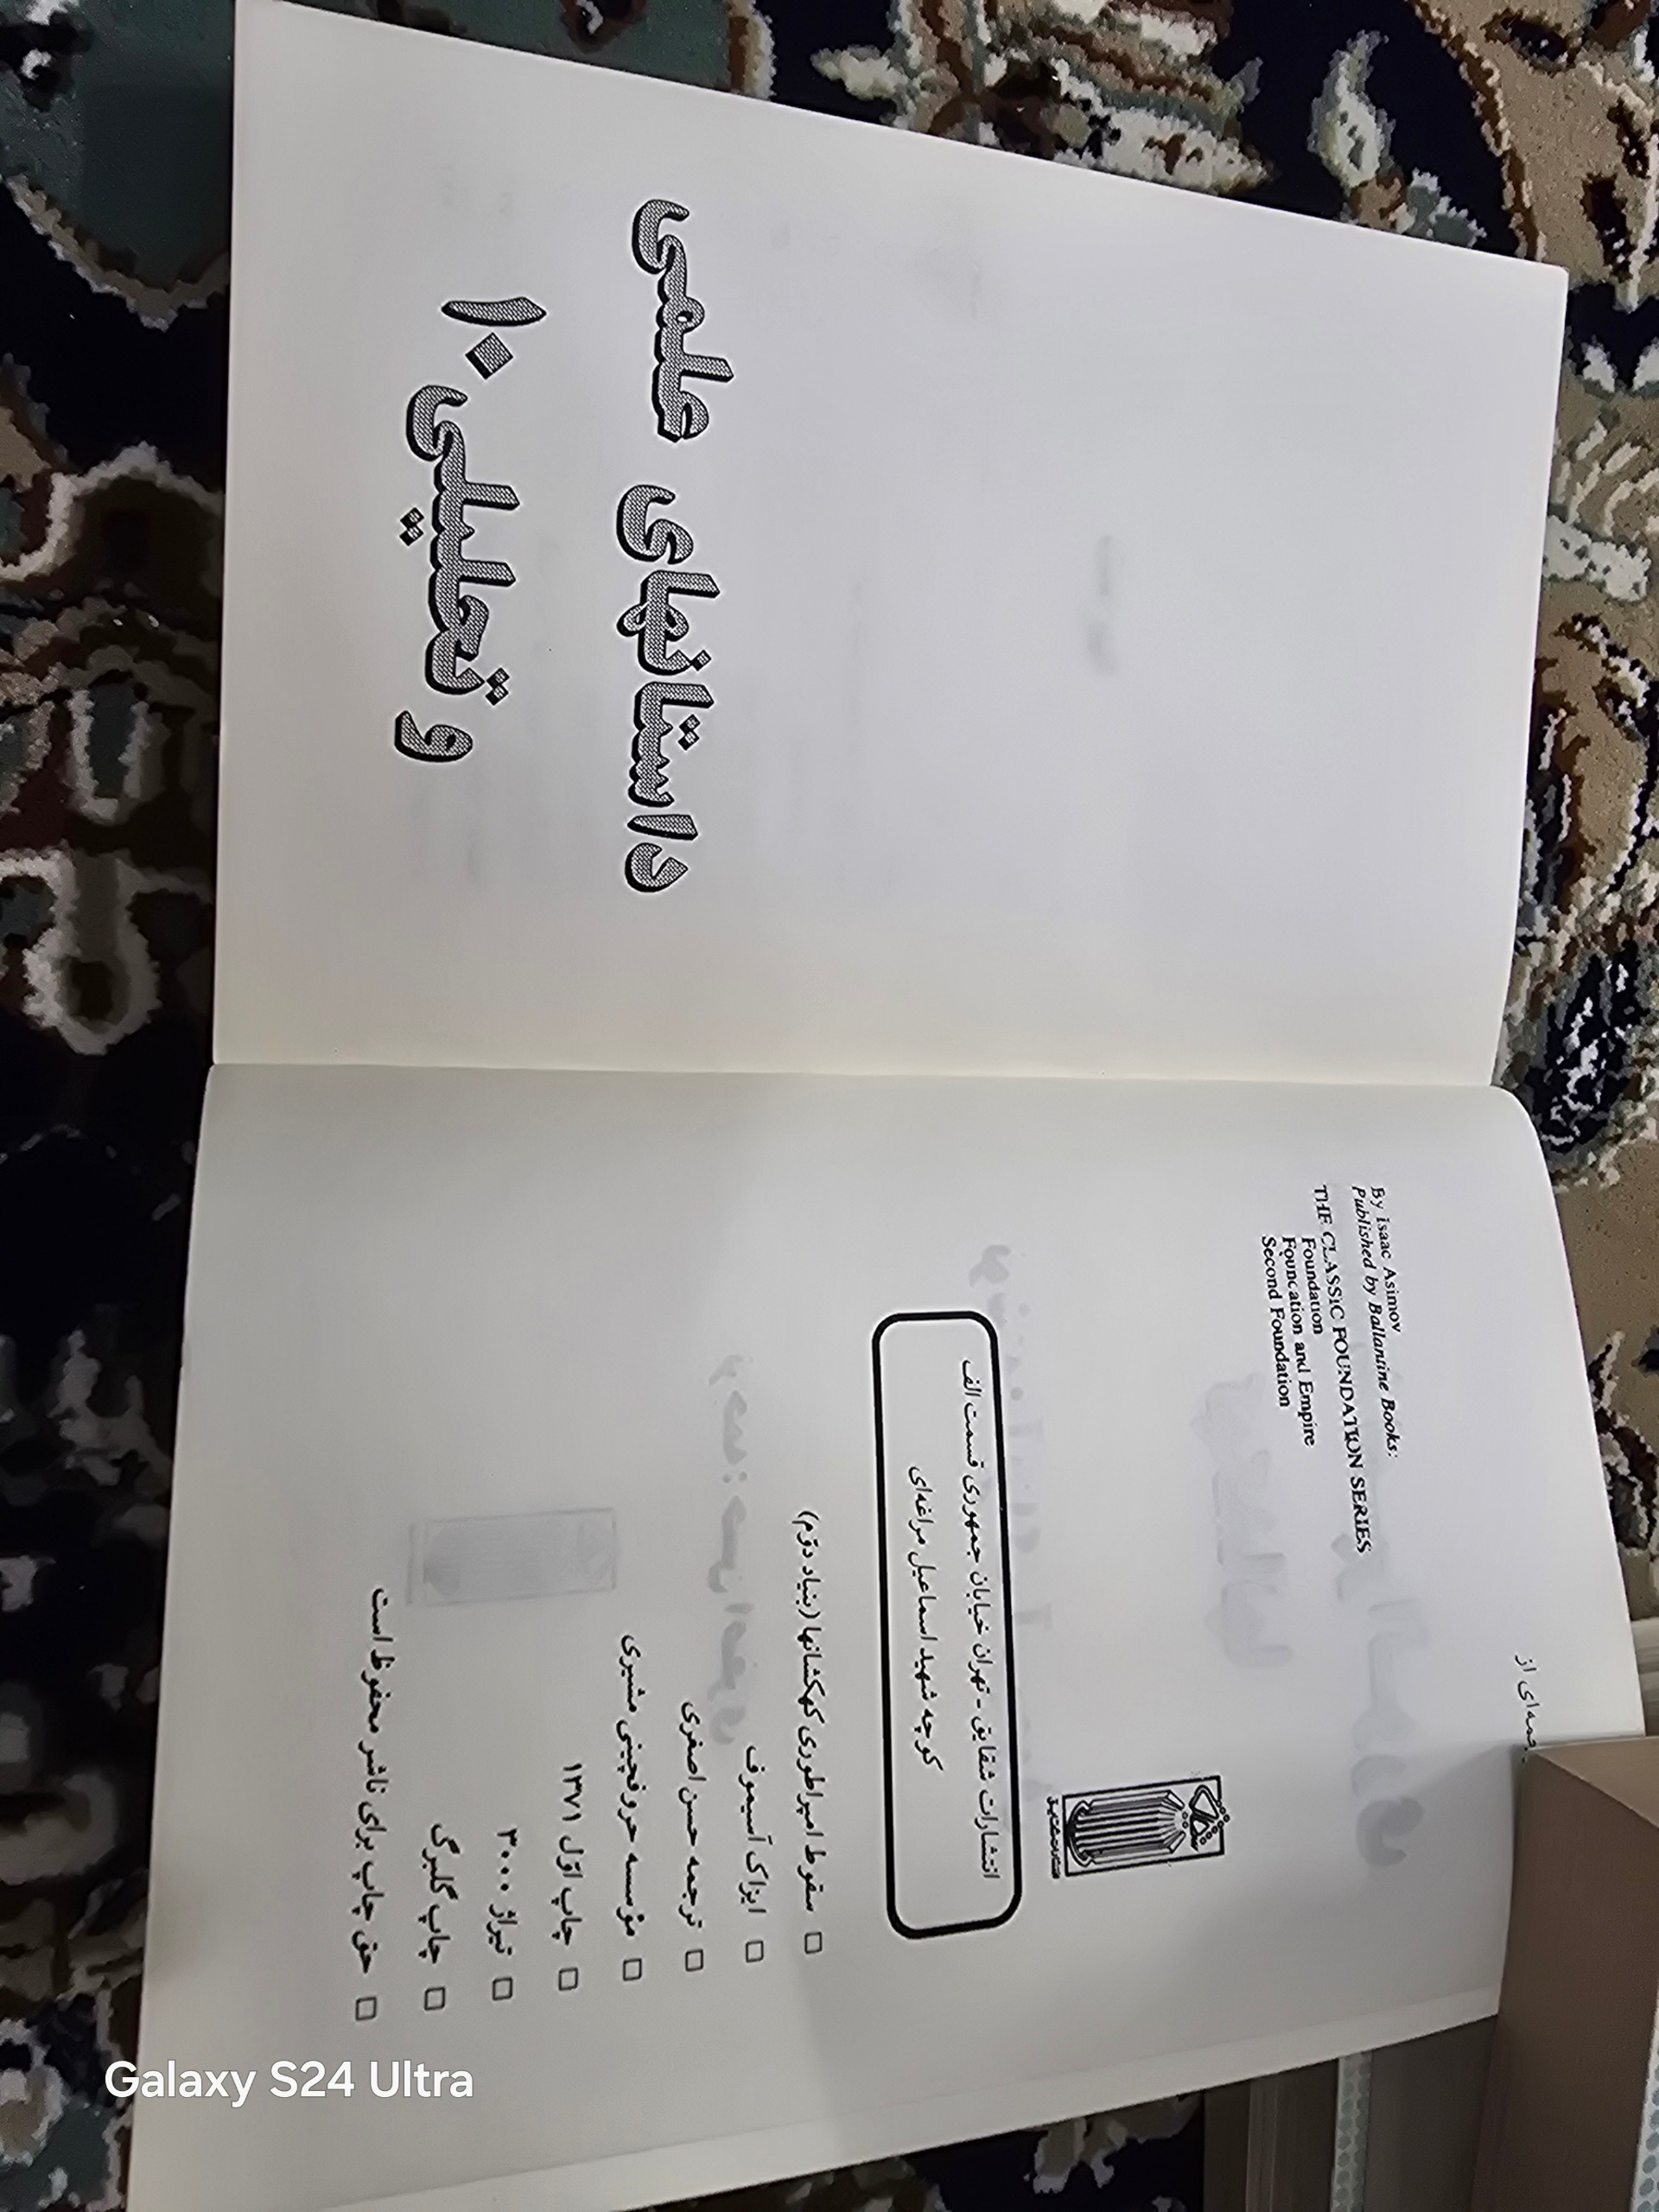 داستانهای علمی
و تحلیلی ۱۰
ترجمه‌ای از
By Isaac Asimov
Published by Ballantine Books:
THE CLASSIC FOUNDATION SERIES
Foundation
Foundation and Empire
Second Foundation
انتشارات شقایق
انتشارات شقایق - تهران خیابان جمهوری قسمت الف
کوچه شهید اسماعیل مراغه‌ای
□ سقوط امپراطوری کهکشانها (بنیاد دوّم)
□ ایزاک آسیموف
□ ترجمه حسن اصغری
□ مؤسسه حروفچینی مشیری
□ چاپ اوّل ۱۳۷۱
□ تیراژ ۳۰۰۰
□ چاپ گلبرگ
□ حق چاپ برای ناشر محفوظ است
Galaxy S24 Ultra